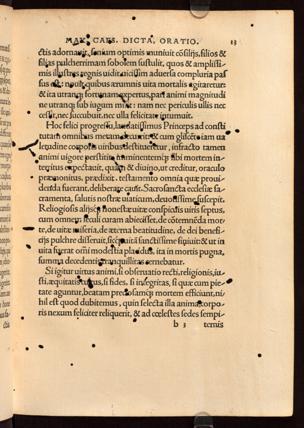 MAX. CAES. DICTA. ORATIO. 13
ctis adornauit, senium optimis muniuit cōsilijs, filios &
filias pulcherrimam sobolem sustulit, quos & amplissi-
mis illustres regnis uidit, uicissim aduersa compluria pas
sus est: nouit quibus ærumnis uita mortalis agitaretur:
& ita utranque fortunam expertus, pari animi magnitudi
ne utranque sub iugum misit: nam nec periculis ullis nec
cessit, nec succubuit, nec ulla felicitate intumuit.
Hoc felici progressu, laudatissimus Princeps ad consti
tutam omnibus metam decurrit: & cum iam ua
letudine corporis uiribus destitueretur, infracto tamen
animi uigore perstitit, imminentemque sibi mortem in-
territus expectauit, quam & diuino, ut creditur, oraculo
præmonitus, prædixit. testamento omnia quæ proui-
denda fuerant, deliberate cauit. Sacrosancta ecclesiæ sa-
cramenta, salutis nostræ uiaticum, deuotissime suscepit.
Religiosis alijsque honestæ uitæ conspicuis uiris septus,
cum omnem seculi curam abiecisset, de cōtemnēda mor
te, de uitæ miseria, de æterna beatitudine, de dei benefi-
cijs pulchre disseruit, sicque uitā sanctissime finiuit: & ut in
uita fuerat omni modestia placidus, ita in mortis pugna,
summa decedentis tranquillitas cernebatur.
Si igitur uirtus animi, si obseruatio recti, religionis, iu-
sti, æquitatis cultus, si fides, si integritas, si quæ cum pie-
tate aguntur, beatam predosamque mortem efficiunt, ni-
hil est quod dubitemus, quin selecta illa anima corpo-
ris nexum feliciter reliquerit, & ad cœlestes sedes sempi-
b 3 ternis